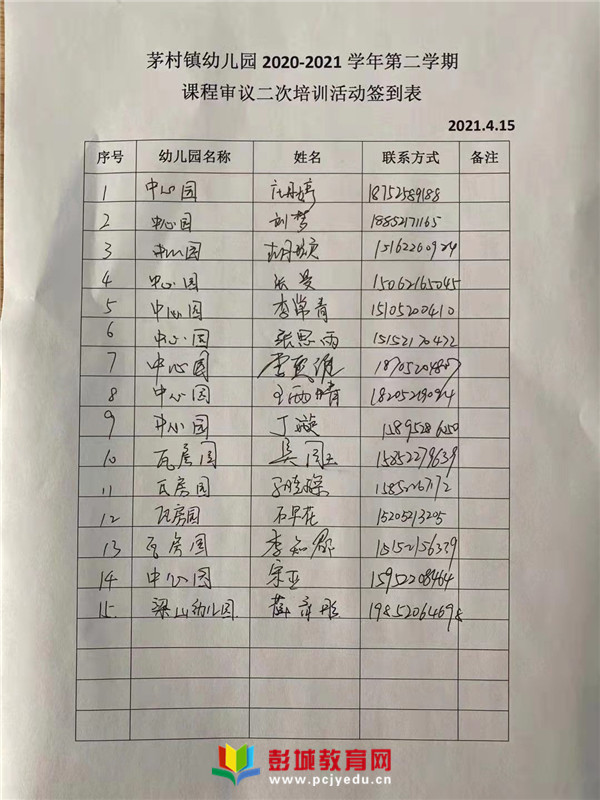 茅村镇幼儿园 2020-2021 学年第二学期
课程审议二次培训活动签到表
2021.4.15
序号 幼儿园名称 姓名 联系方式 备注
1 中心园 18752589188
2 中心园 刘梦 18852171165
3 中心园 15162260924
4 中心园 15062165045
5 中心园 李常青 15105200410
6 中心园 张思雨 15152170472
7 中心园
8 中心园 王西晴
9 中心园 丁璇
10 瓦房园 吴园玉 15852279639
11 瓦房园
12 瓦房园 石早花 15205213205
13 瓦房园 15152156339
14 中心园 宋亚
15 梁山幼儿园 19852064698
彭城教育网
www.pcjyedu.cn